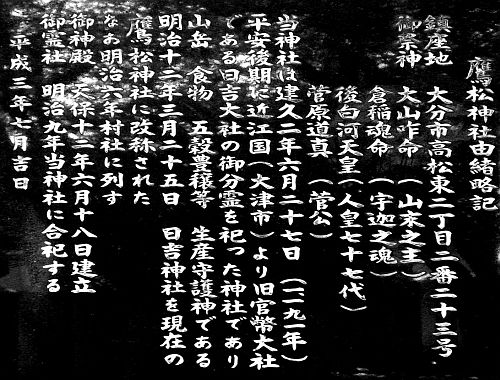 鷹松神社由緒略記
鎮座地　大分市高松東二丁目二番二十三号
御祭神　大山咋命（山末之主）
倉稲魂命（宇迦之魂）
後白河天皇（人皇七十七代）
菅原道真（菅公）
当神社は建久二年六月二十七日（一一九一年）
平安後期に近江国（大津市）より旧官幣大社
である日吉大社の御分霊を祀った神社であり
山岳　食物　五穀豊穣等　生産守護神である
明治十二年三月二十五日　日吉神社を現在の
鷹松神社に改称された
なお明治六年村社に列す
御神殿　天保十二年六月十八日建立
御霊社　明治九年当神社に合祀する
平成三年七月吉日